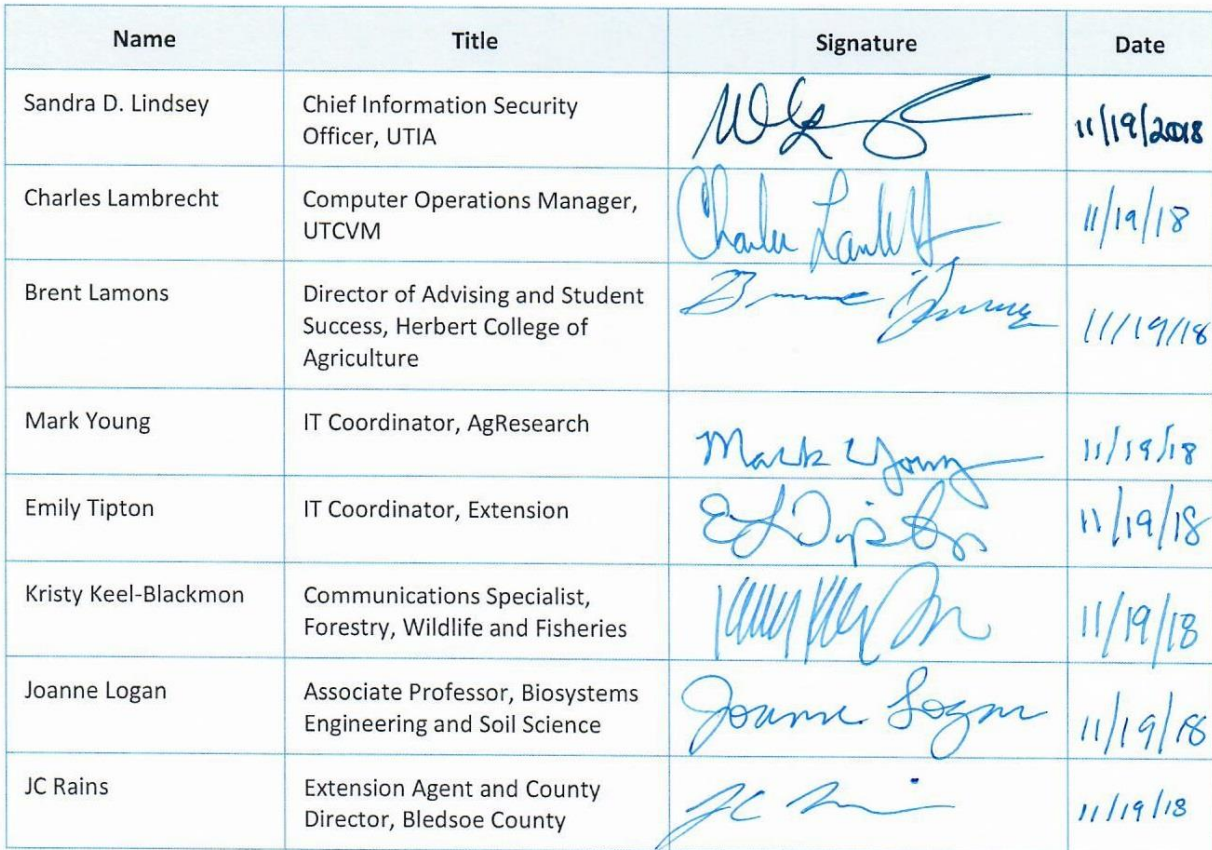 Name Title Signature Date
Sandra D. Lindsey Chief Information Security
Officer, UTIA 11/19/2018
Charles Lambrecht Computer Operations Manager,
UTCVM Charles 11/19/18
Brent Lamons Director of Advising and Student
Success, Herbert College of
Agriculture 11/19/18
Mark Young IT Coordinator, AgResearch
Mark Young 11/19/18
Emily Tipton IT Coordinator, Extension 11/19/18
Kristy Keel-Blackmon Communications Specialist,
Forestry, Wildlife and Fisheries 11/19/18
Joanne Logan Associate Professor, Biosystems
Engineering and Soil Science Joanne Logan 11/19/18
JC Rains Extension Agent and County
Director, Bledsoe County JC 11/19/18